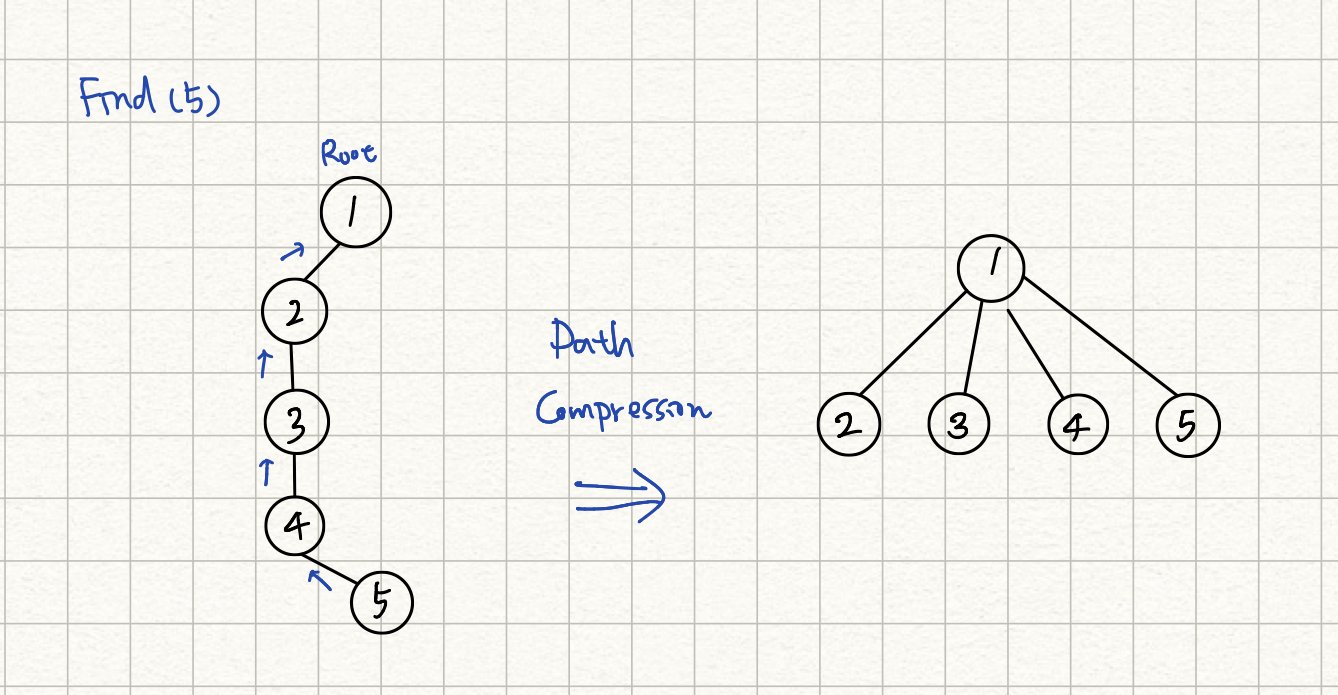 Find (5)
Root
1
2
3
4
5
Path
Compression
1
2 3 4 5